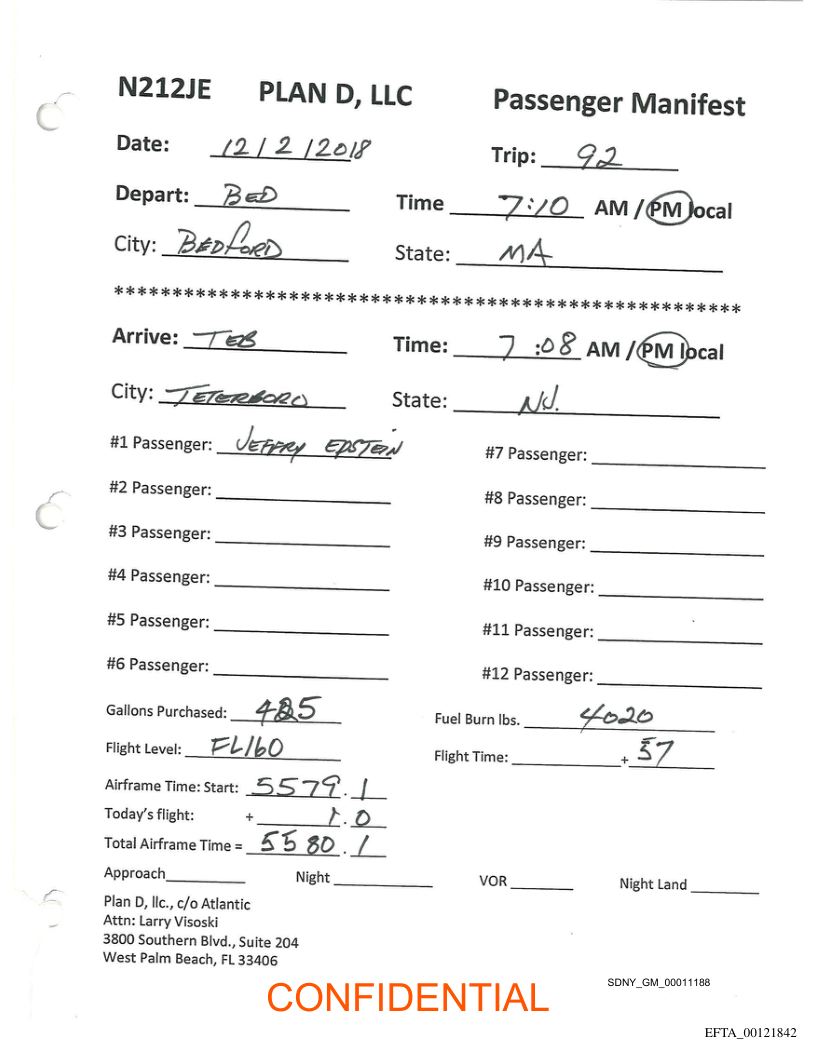 N212JE PLAN D, LLC Passenger Manifest
Date: 12/2/2018 Trip: 92
Depart: BED Time 7:10 AM / PM local
City: BEDFORD State: MA
******************************************************
Arrive: TEB Time: 7:08 AM / PM local
City: TETERBORO State: NJ.
#1 Passenger: JEFFRY EPSTEIN #7 Passenger:
#2 Passenger: #8 Passenger:
#3 Passenger: #9 Passenger:
#4 Passenger: #10 Passenger:
#5 Passenger: #11 Passenger:
#6 Passenger: #12 Passenger:
Gallons Purchased: Fuel Burn lbs. 4020
Flight Level: FL160 Flight Time: + 57
Airframe Time: Start: 5579.1
Today's flight: + 1.0
Total Airframe Time = 5580.1
Approach Night VOR Night Land
Plan D, llc., c/o Atlantic
Attn: Larry Visoski
3800 Southern Blvd., Suite 204
West Palm Beach, FL 33406
SDNY_GM_00011188
CONFIDENTIAL
EFTA_00121842